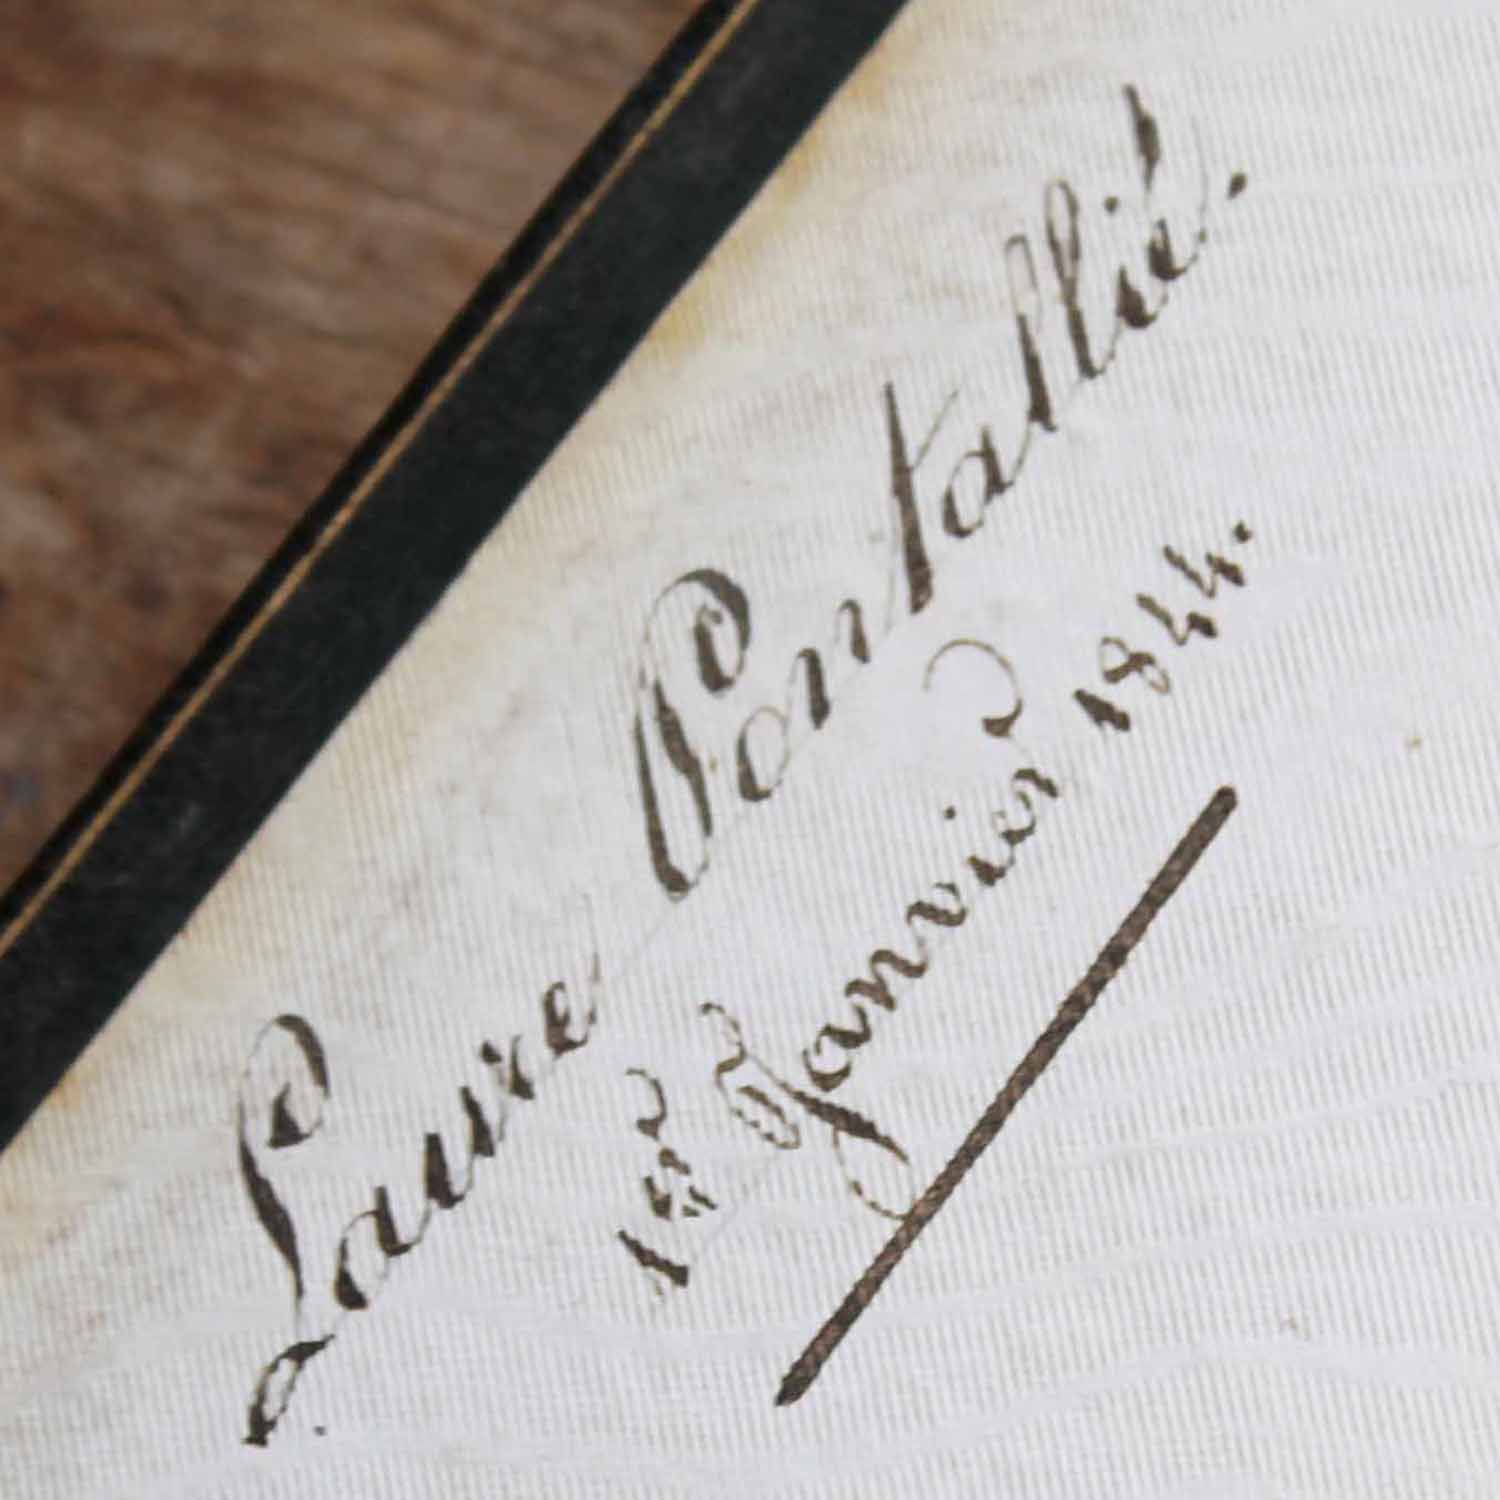 Laure Pontallié.
1er Janvier 1844.